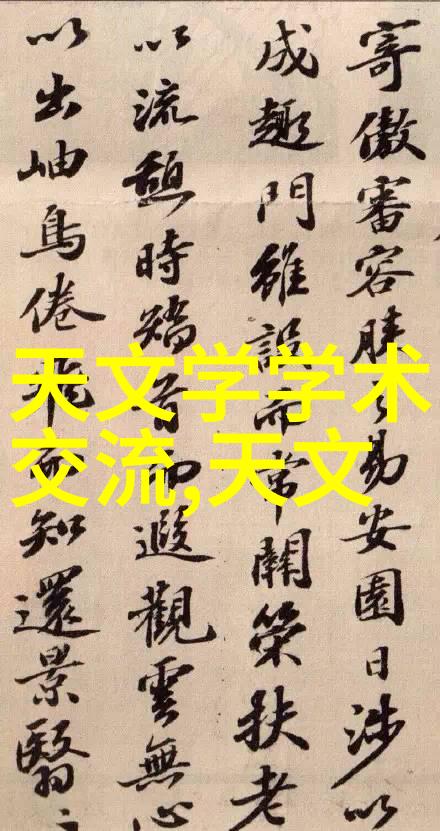 寄傲審容膝之易安園日涉以
成趣門雖設而常關策扶老
以流憩時矯首而遐觀雲無心
以出岫鳥倦飛而知還景翳〻
天文学学术
交流,天文